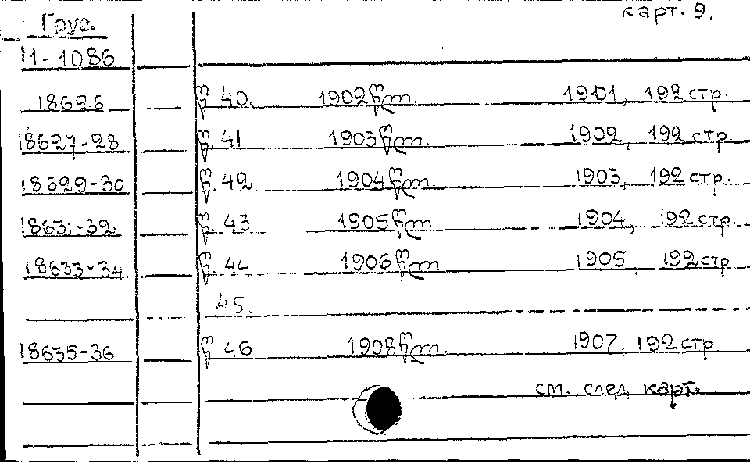 Груз. карт. 9.
11-1086
18626 წ 40. 1902 წლ. 1901, 192 стр.
18627-28 წ. 41 1903 წლ. 1902, 192 стр.
18629-30 წ. 42 1904 წლ. 1903, 192 стр.
18631-32 წ 43 1905 წლ 1904, 192 стр.
18633-34 წ 44 1906 წლ. 1905, 192 стр
45.
18635-36 წ 46 1908 წლ. 1907, 192 стр
см. след. карт.